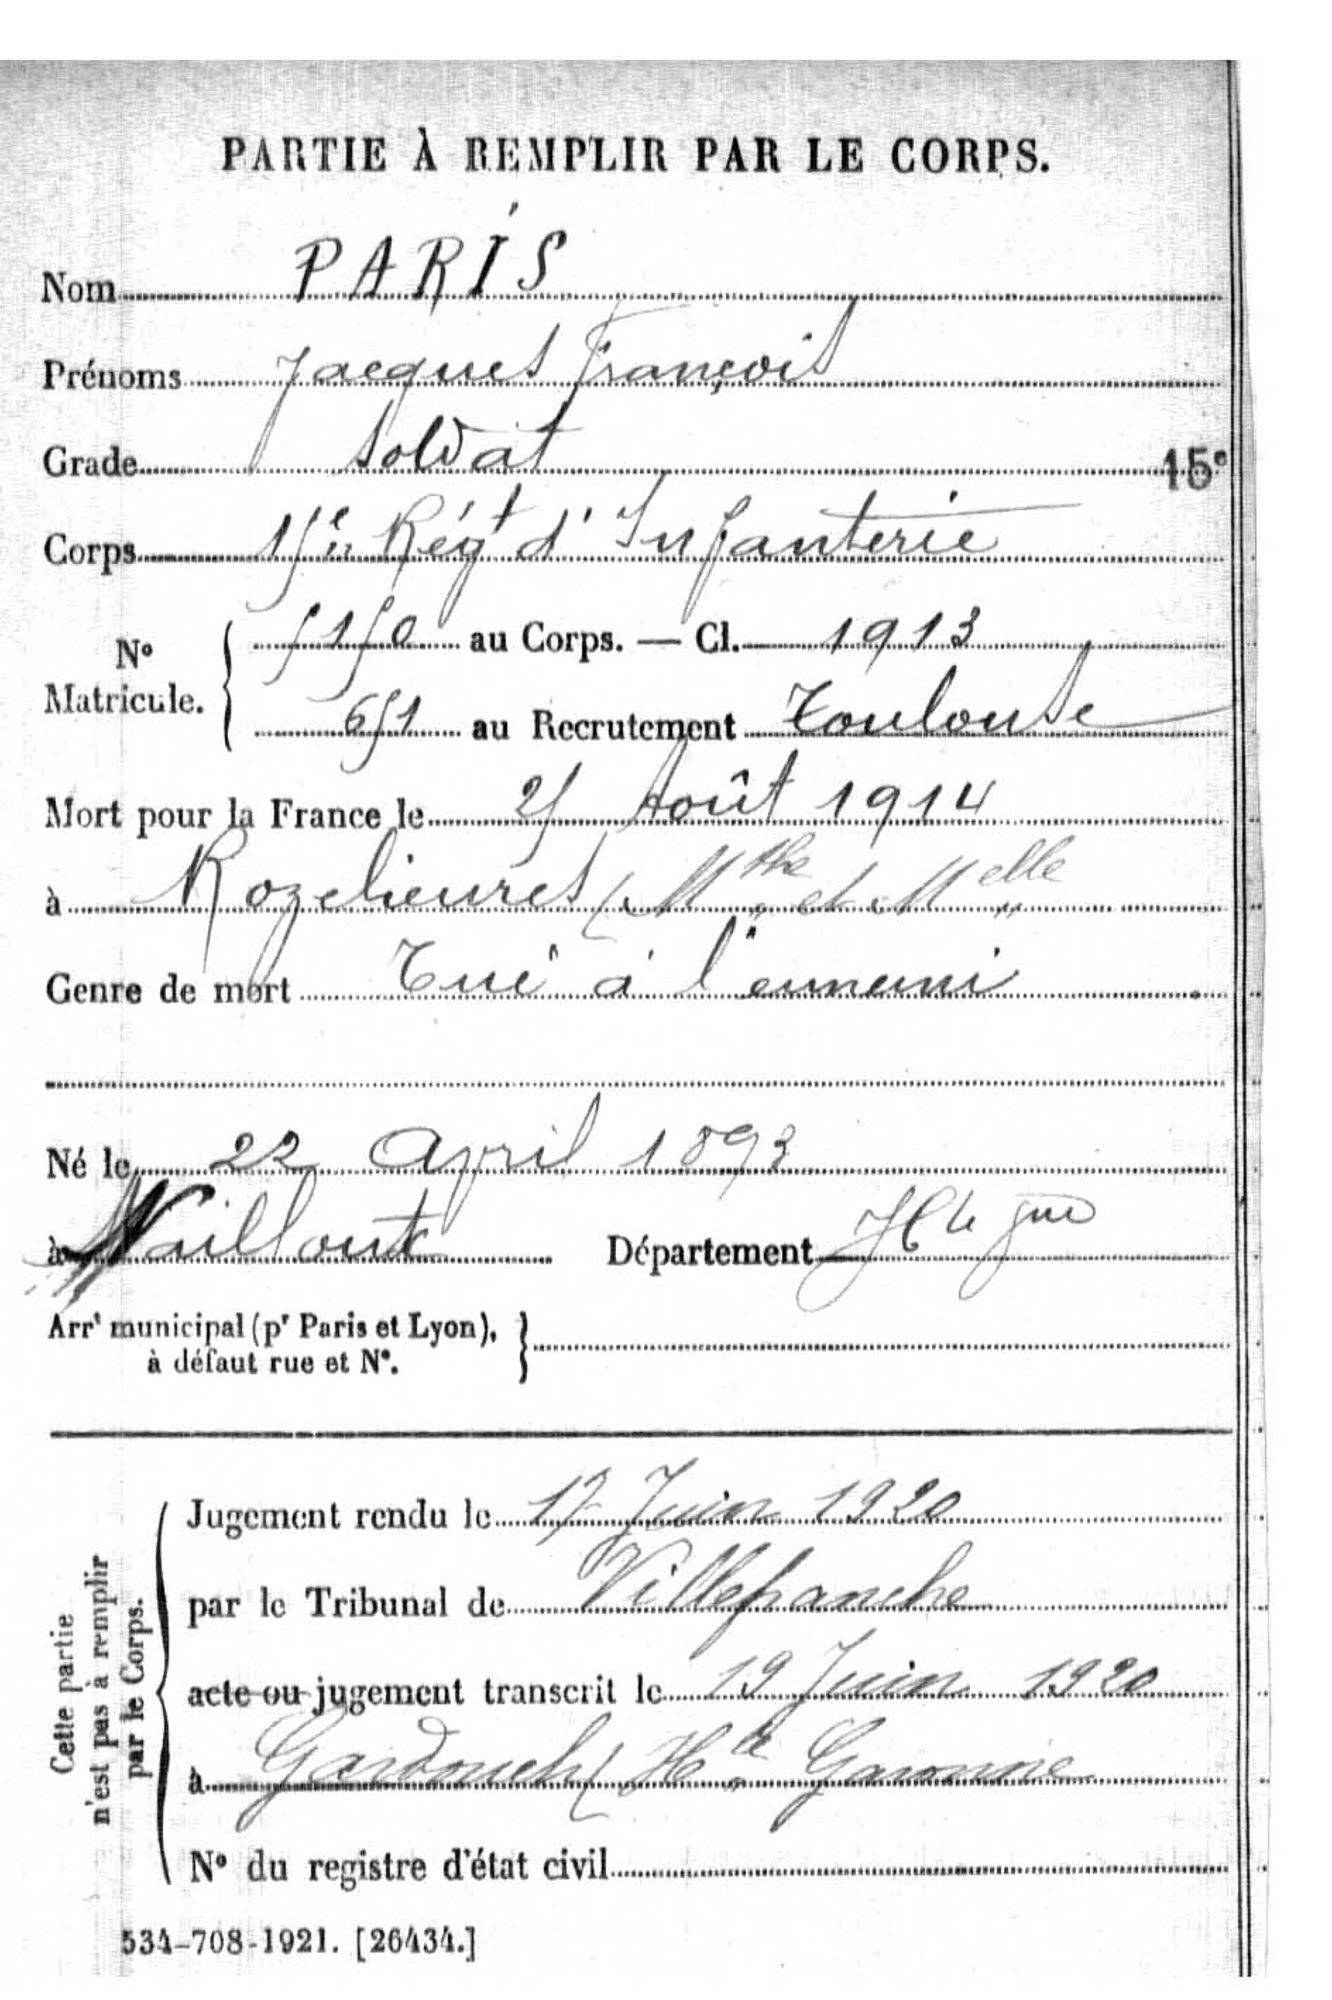 PARTIE À REMPLIR PAR LE CORPS.
Nom PARIS
Prénoms Jacques François
Grade Soldat
15e
Corps 15e Régt d'Infanterie
No Matricule. { 5150 au Corps. — Cl. 1913
651 au Recrutement Toulouse
Mort pour la France le 25 Août 1914
à Rozelieures (Mthe et Melle
Genre de mort Tué à l'ennemi
Né le 22 April 1893
à Naillout Département Hte Gne
Arrt municipal (pr Paris et Lyon), }
à défaut rue et No.
Cette partie
n'est pas à remplir
par le Corps.
Jugement rendu le 17 Juin 1920
par le Tribunal de Villefranche
acte ou jugement transcrit le 19 Juin 1920
à Gardouch (Hte Garonne
No du registre d'état civil
534-708-1921. [26434.]